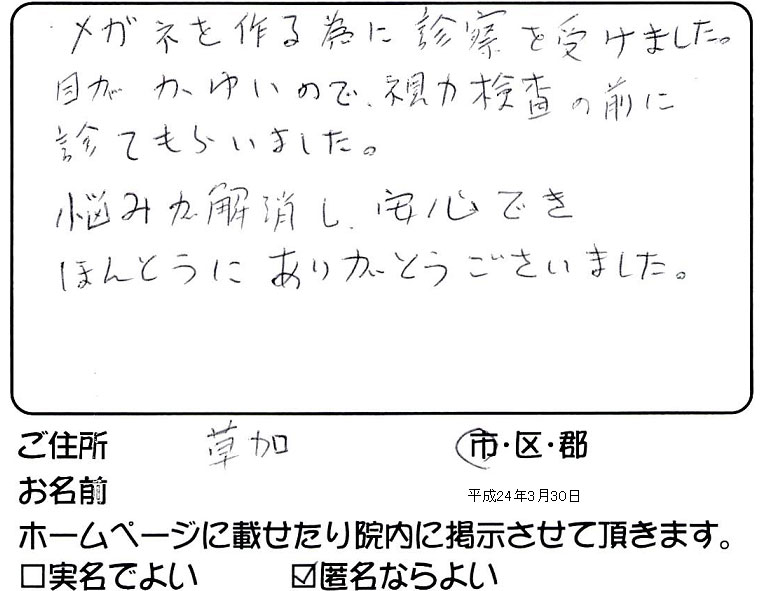 メガネを作る為に診察を受けました。
目がかゆいので、視力検査の前に
診てもらいました。
悩みが解消し、安心でき
ほんとうにありがとうございました。
ご住所 草加 市・区・郡
お名前 平成24年3月30日
ホームページに載せたり院内に掲示させて頂きます。
□実名でよい ☑匿名ならよい